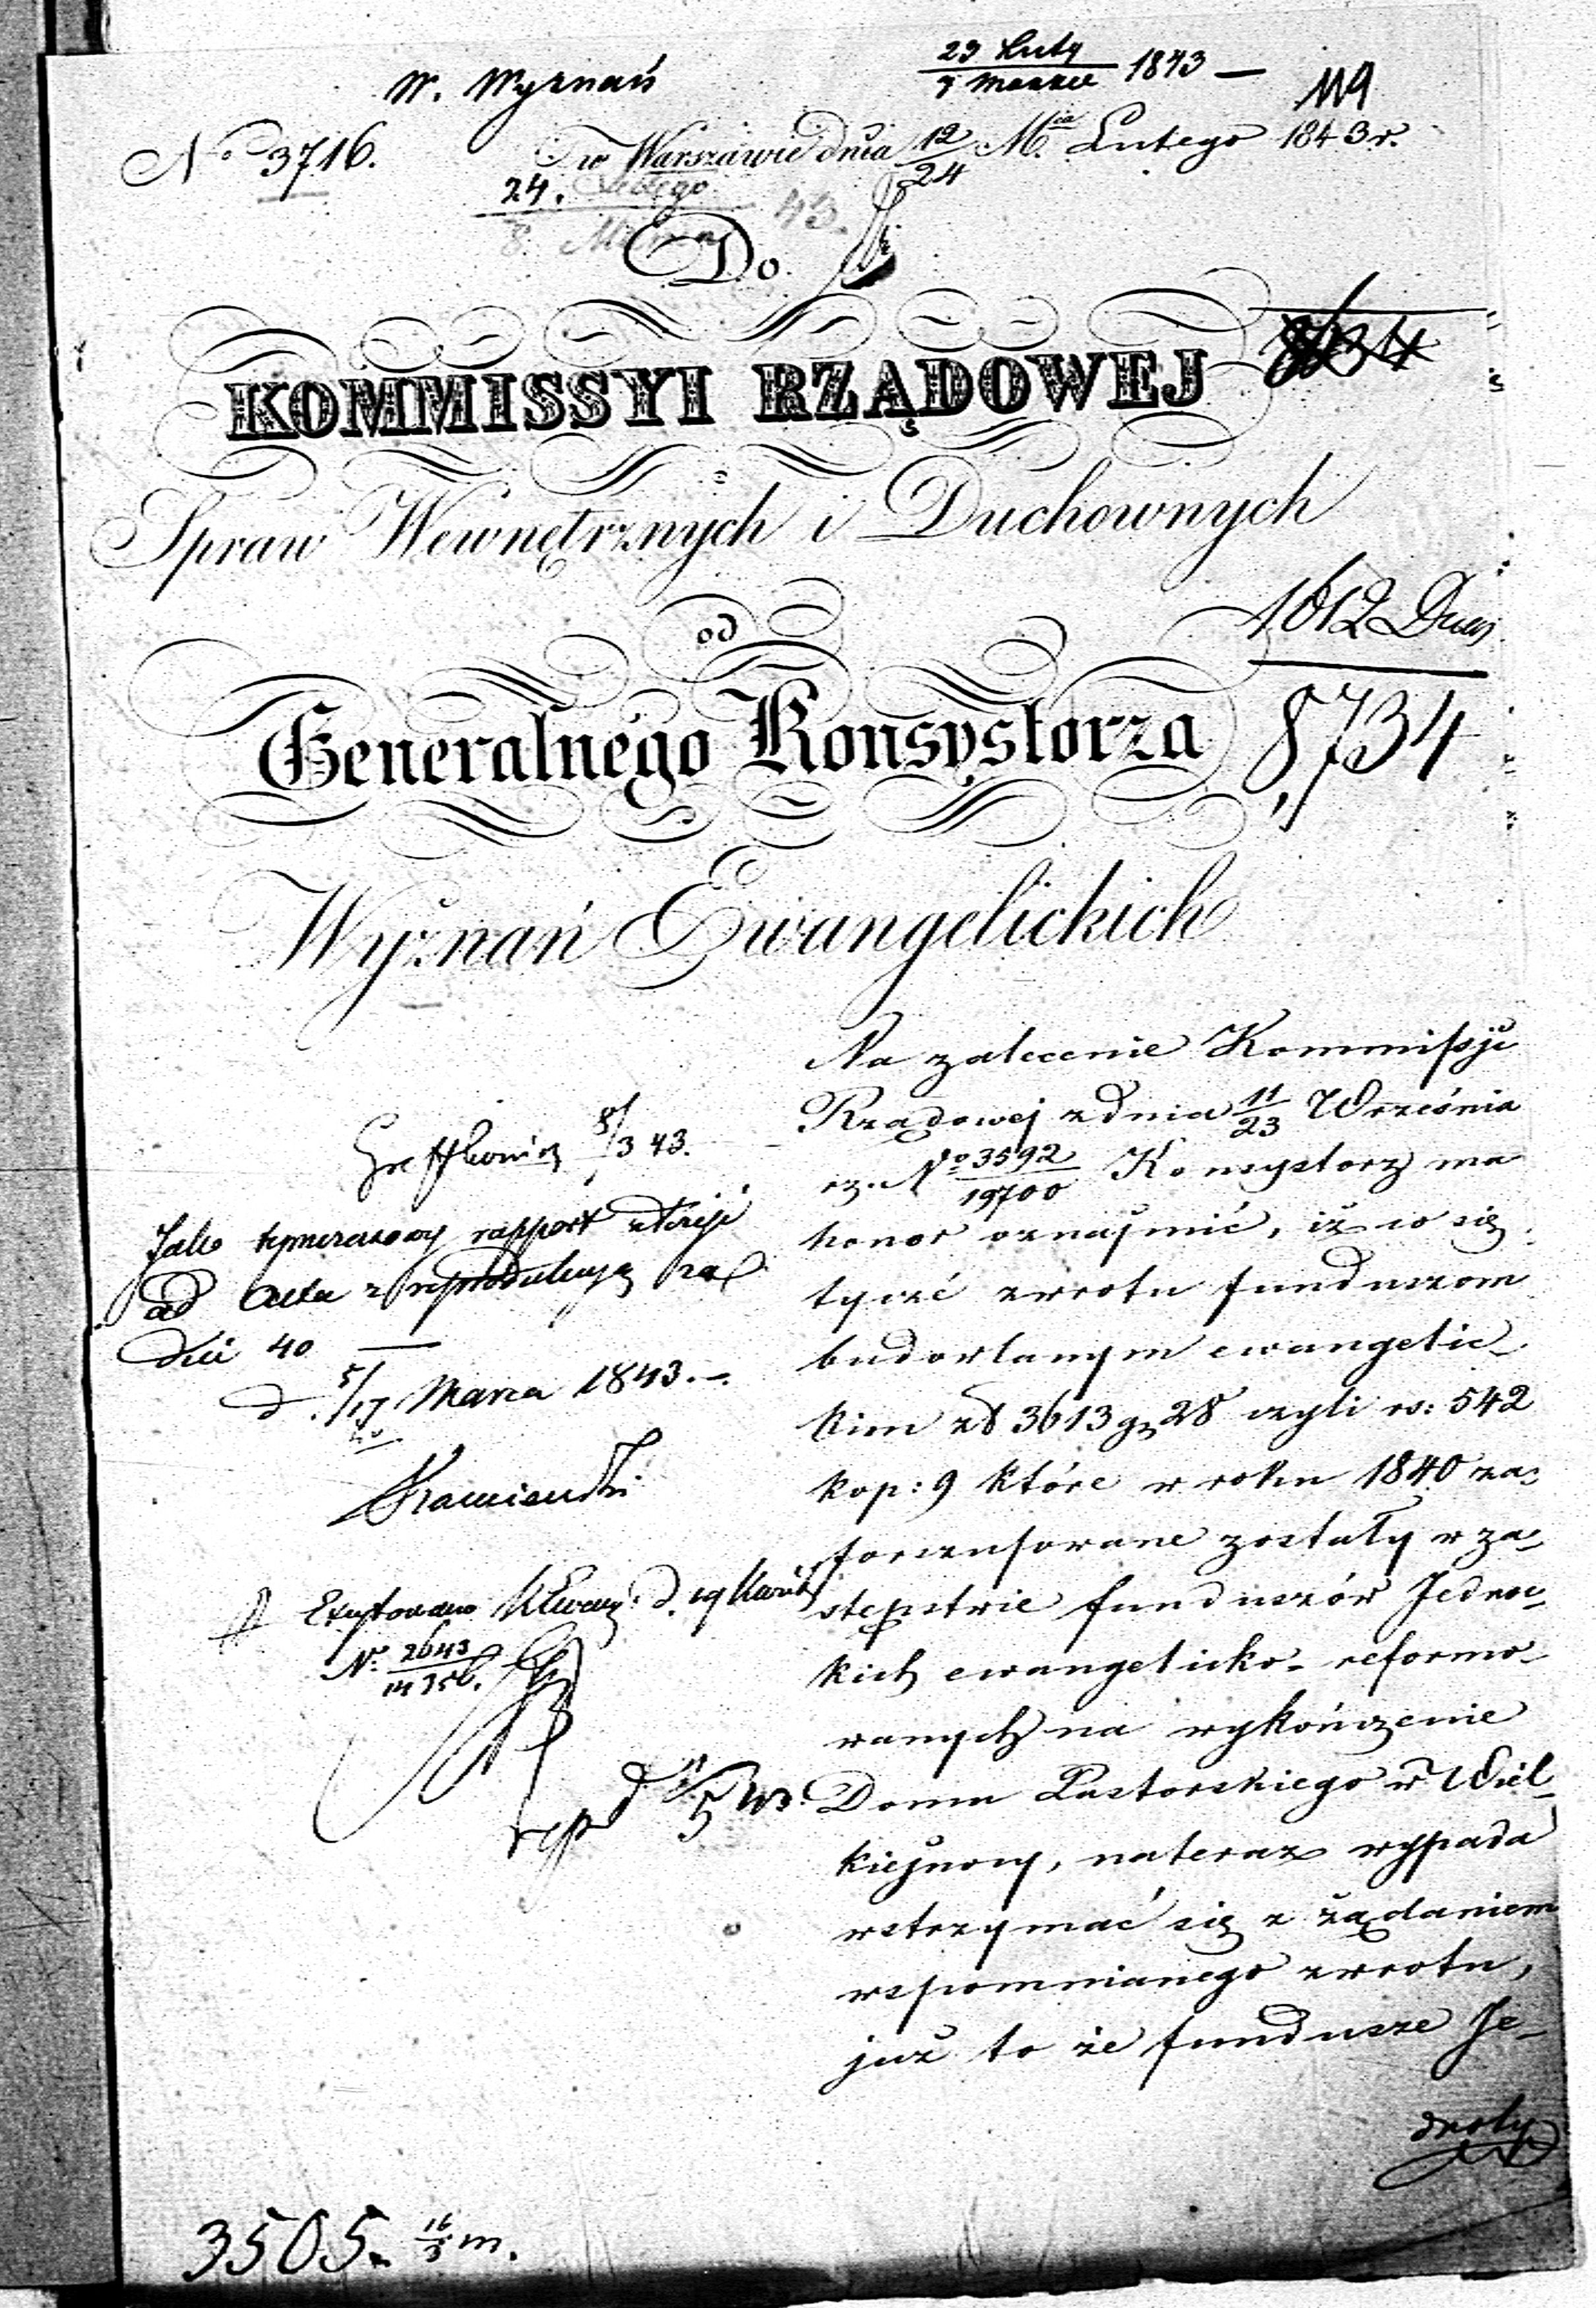 W. Wyznań
23 Luty
7 Marca 1843 —
119
No 3716.
w Warszawie dnia 12/24 M.ca Lutego 1843 r.
24. Lutego
8. Marca 43.
Do
KOMMISSYI RZĄDOWEJ
Spraw Wewnętrznych i Duchownych
od
1612
8734
Generalnego Konsystorza
Wyznań Ewangelickich
Na zalecenie Kommissyi
Rządowej z dnia 11/23 Września
rz. No 3592/19700 Konsystorz ma
honor oznajmić, iż co się
tyczé zwrotu funduszom
budowlanym ewangelic-
kim zł 3613 g 28 czyli rs: 542
kop: 9 które w roku 1840 za-
forszusowane zostały w za-
stępstwie funduszów Jednoc-
kich ewangelicko-reformo-
wanych na wykończenie
Domu Pastorskiego w Wiel-
kiejnocy, nateraz wypada
wstrzymać się z żądaniem
wspomnianego zwrotu,
już to że fundusze Je-
dnoty
8/3 43.
Jako tymczasowy rapport
ad acta z reprodukcyą za
dni 40 —
d. 5/17 Marca 1843.-.
d. 19
No 2643/14356.
3505. 16/3 m.